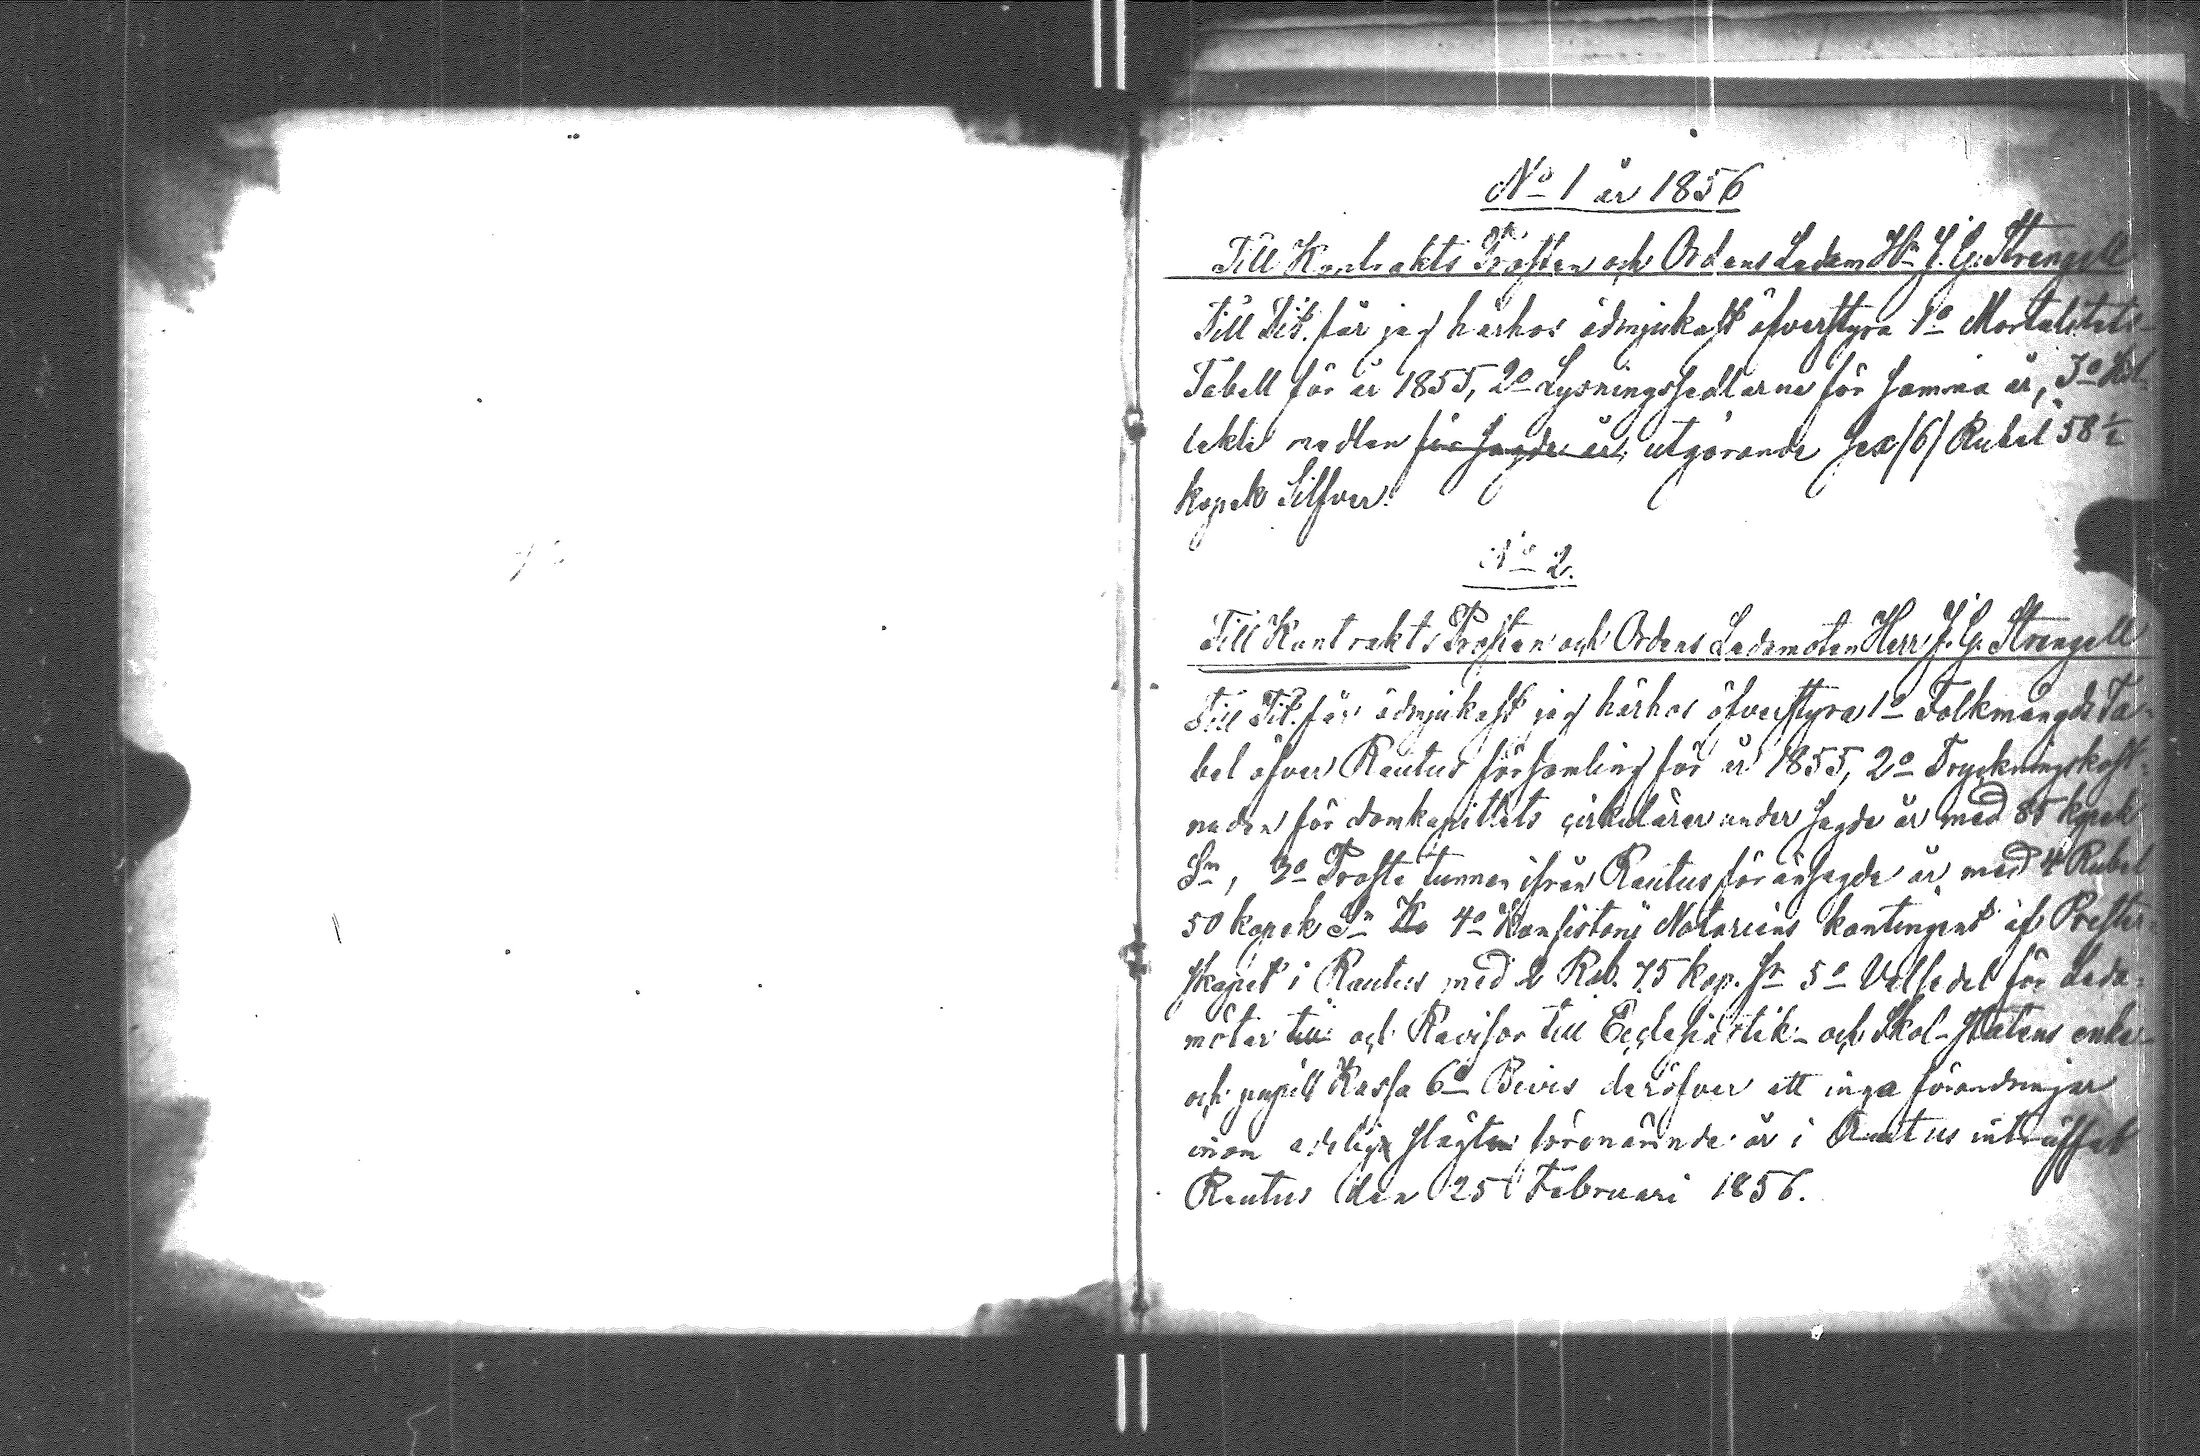 No 1 år 1856
Till Kontrakts Prosten och Ordens Ledam Hr J. G. Strengell
Till Tit. får jag härhos ödmjukast öfverstyra 1o Mortalitets-
Tabell för år 1855, 2o Lysningssedlarne för samma år, 3o Kol-
lekte medlen för sagde år, utgörande sex (6) Rubel 58 1/2
kopek Silfver.
No 2.
Till Kontrakts Prosten och Ordens Ledamoten Herr J. G. Strengell
Till Tit. får ödmjukast jag härhos öfverstyra 1o Folkmängds Ta-
bel öfver Rautus församling för år 1855, 2o Tryckningskost-
naden för domkapitlets cirkulärer under sagde år med 85 kopek
Sr, 3o Proste tunnan ifrån Rautus för änsagde år med 4 Rubel
50 kopek Sr Ko 4o Konsistorii Notariens kontingent af Prester-
skapet i Rautus med 2 Rub. 75 kop. Sr 5o Valsedel för Leda-
möter till och Revisor till Ecclesiastik- och Skol-Statens enke-
och pupill Kassa 6o Bevis deröfver att inga förändringar
inom adeliga slägten förenämnde år i Rautus inträffat
Rautus den 25 Februari 1856.